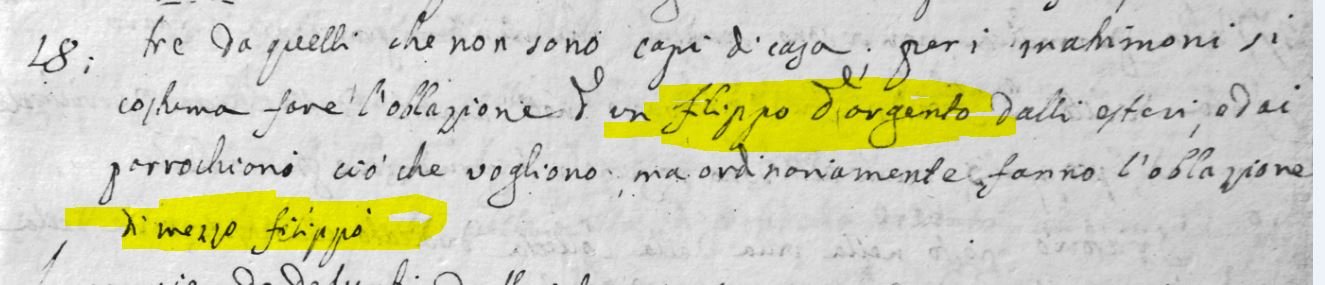 28; tre da quelli che non sono capi di casa. per i matrimoni si
costuma fare l'oblazzione d'un filippo d'argento dalli esteri, e dai
parrochiani ciò che vogliono, ma ordinariamente fanno l'oblazzione
di mezzo filippo